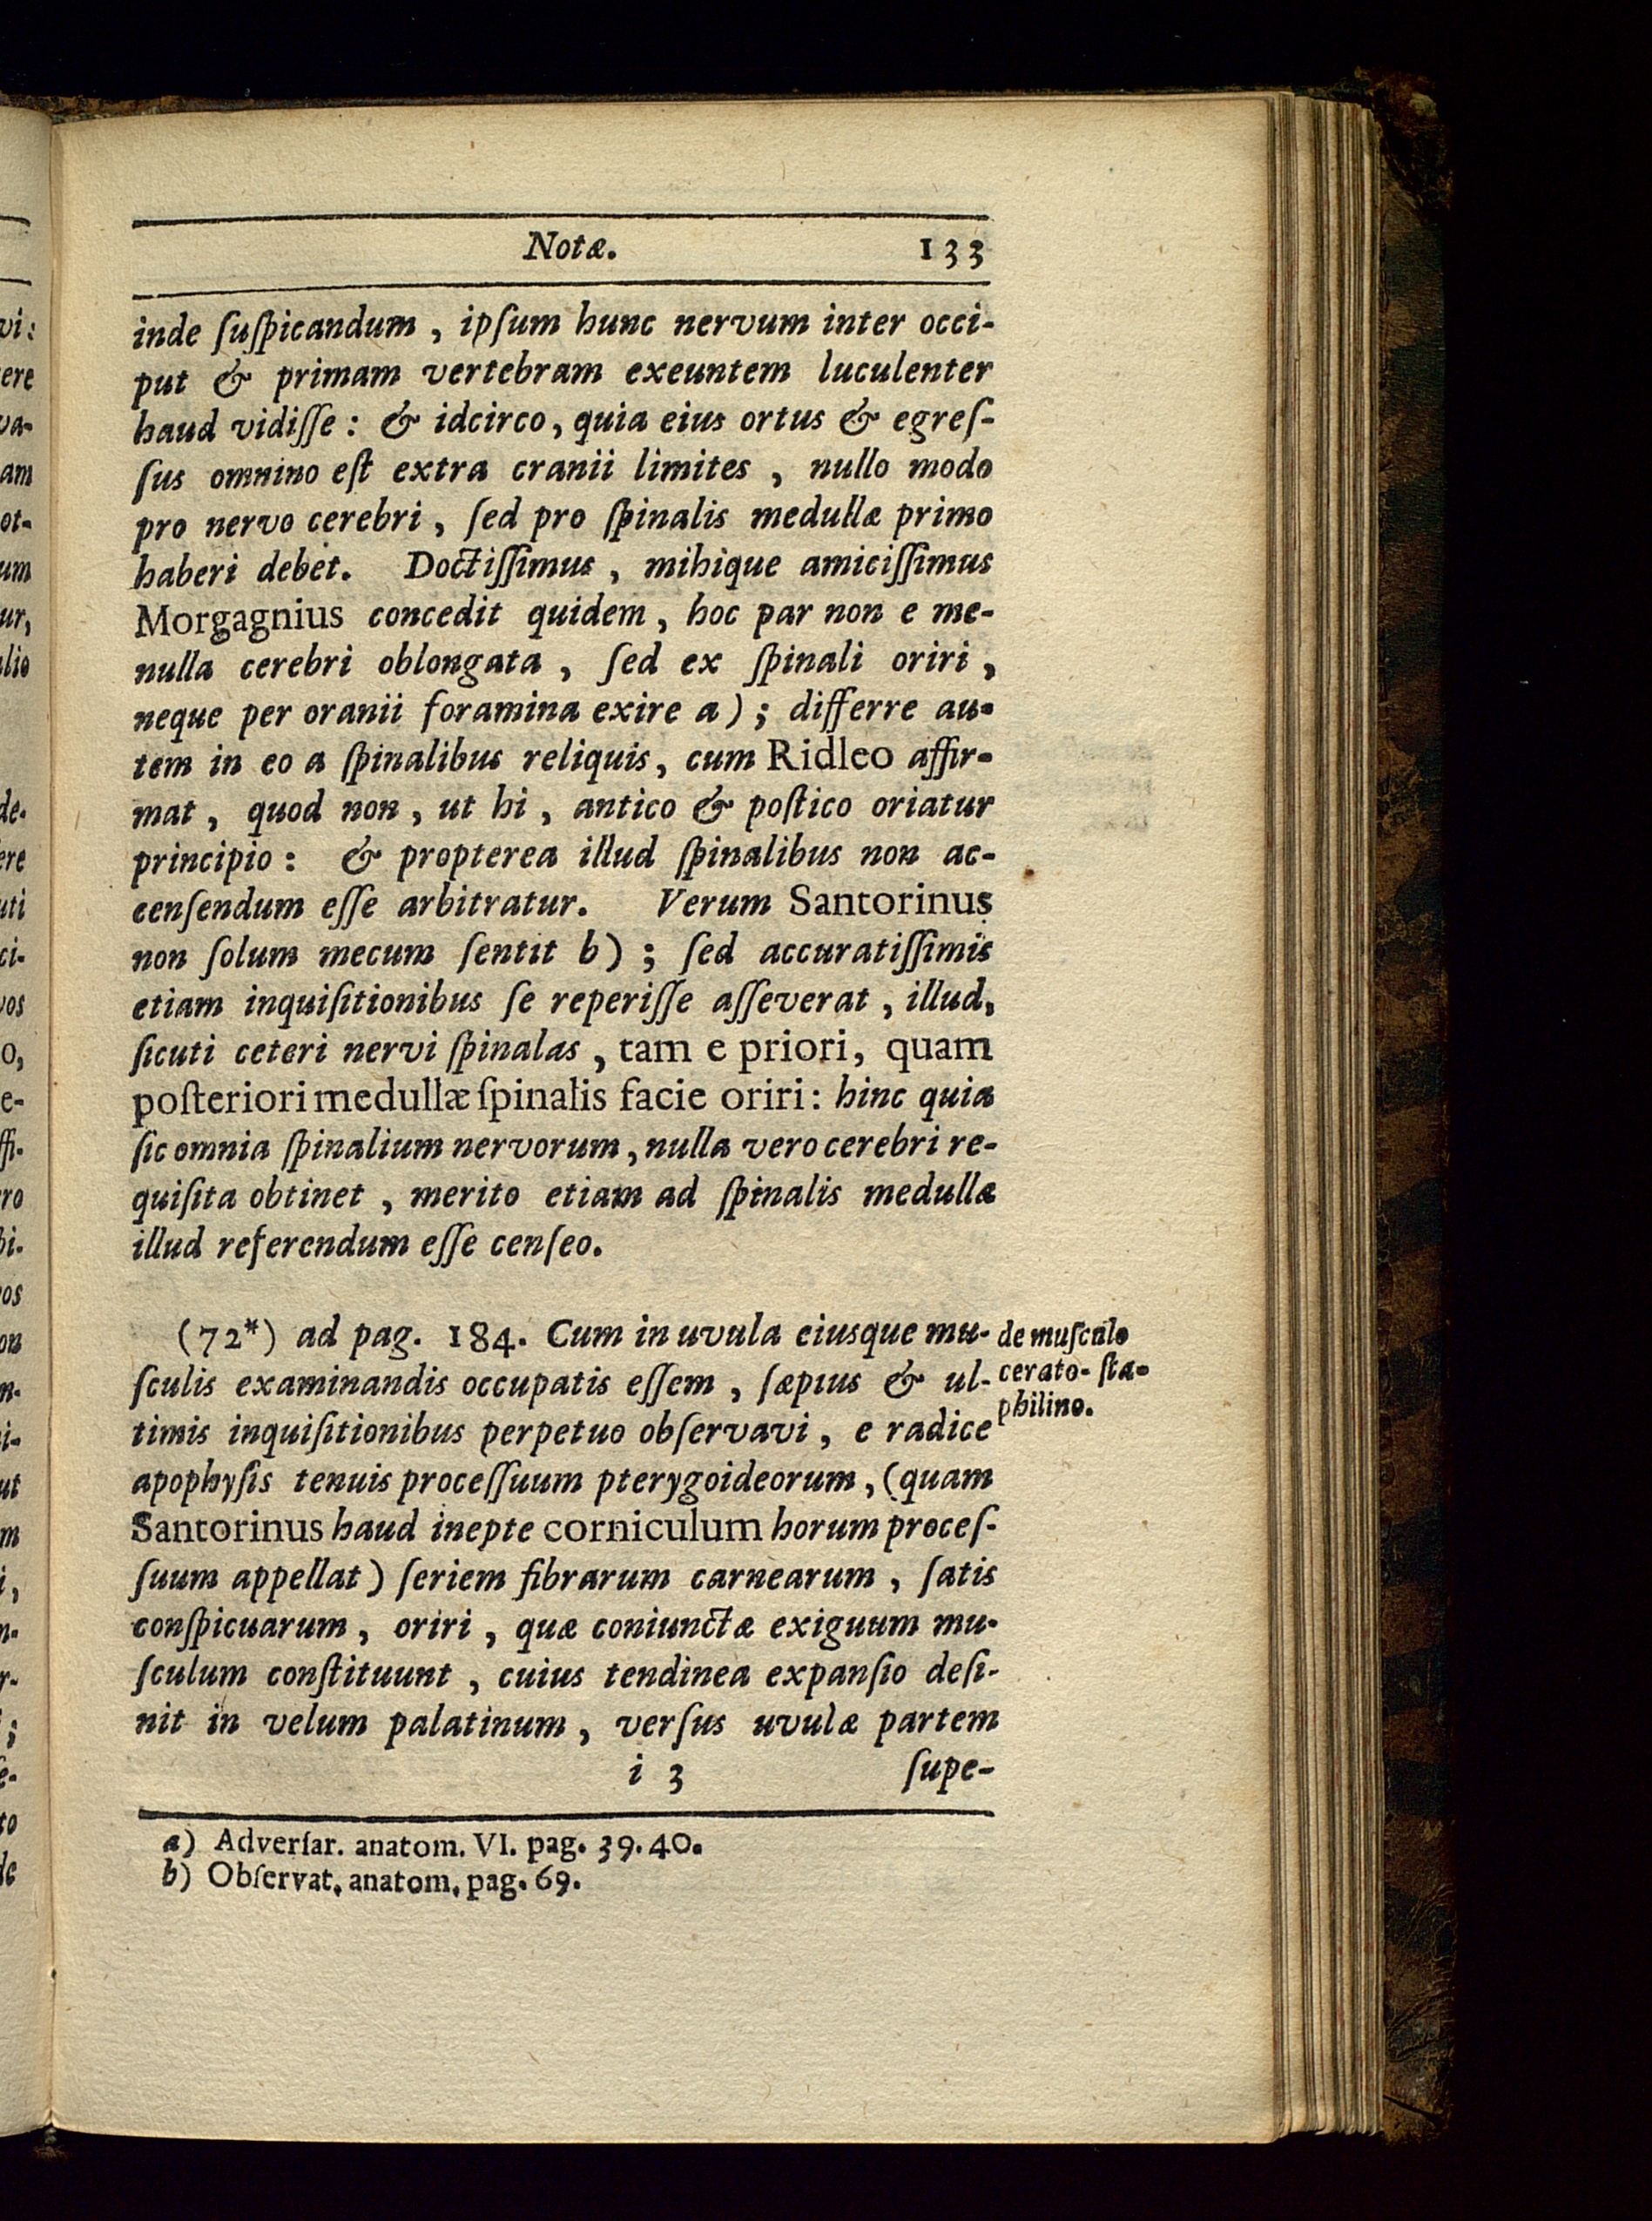 Notæ. 133
inde ſuſpicandum, ipſum hunc nervum inter occi-
put & primam vertebram exeuntem luculenter
haud vidiſſe: & idcirco, quia eius ortus & egreſ-
ſus omnino eſt extra cranii limites, nullo modo
pro nervo cerebri, ſed pro ſpinalis medullæ primo
haberi debet. Doctiſſimus, mihique amiciſſimus
Morgagnius concedit quidem, hoc par non e me-
nulla cerebri oblongata, ſed ex ſpinali oriri,
neque per oranii foramina exire a); differre au-
tem in eo a ſpinalibus reliquis, cum Ridleo affir-
mat, quod non, ut hi, antico & poſtico oriatur
principio: & propterea illud ſpinalibus non ac-
cenſendum eſſe arbitratur. Verum Santorinus
non ſolum mecum ſentit b); ſed accuratiſſimis
etiam inquiſitionibus ſe reperiſſe aſſeverat, illud,
ſicuti ceteri nervi ſpinalas, tam e priori, quam
poſteriori medullæ ſpinalis facie oriri: hinc quia
ſic omnia ſpinalium nervorum, nulla vero cerebri re-
quiſita obtinet, merito etiam ad ſpinalis medullæ
illud referendum eſſe cenſeo.
(72*) ad pag. 184. Cum in uvula eiusque mu-
ſculis examinandis occupatis eſſem, ſæpius & ul-
timis inquiſitionibus perpetuo obſervavi, e radice
apophyſis tenuis proceſſuum pterygoideorum, (quam
Santorinus haud inepte corniculum horum proceſ-
ſuum appellat) ſeriem fibrarum carnearum, ſatis
conſpicuarum, oriri, quæ coniunctæ exiguum mu-
ſculum conſtituunt, cuius tendinea expanſio deſi-
nit in velum palatinum, verſus uvulæ partem
i 3 ſupe-
de muſculo
cerato-ſta-
philino.
a) Adverſar. anatom. VI. pag. 39. 40.
b) Obſervat. anatom. pag. 69.